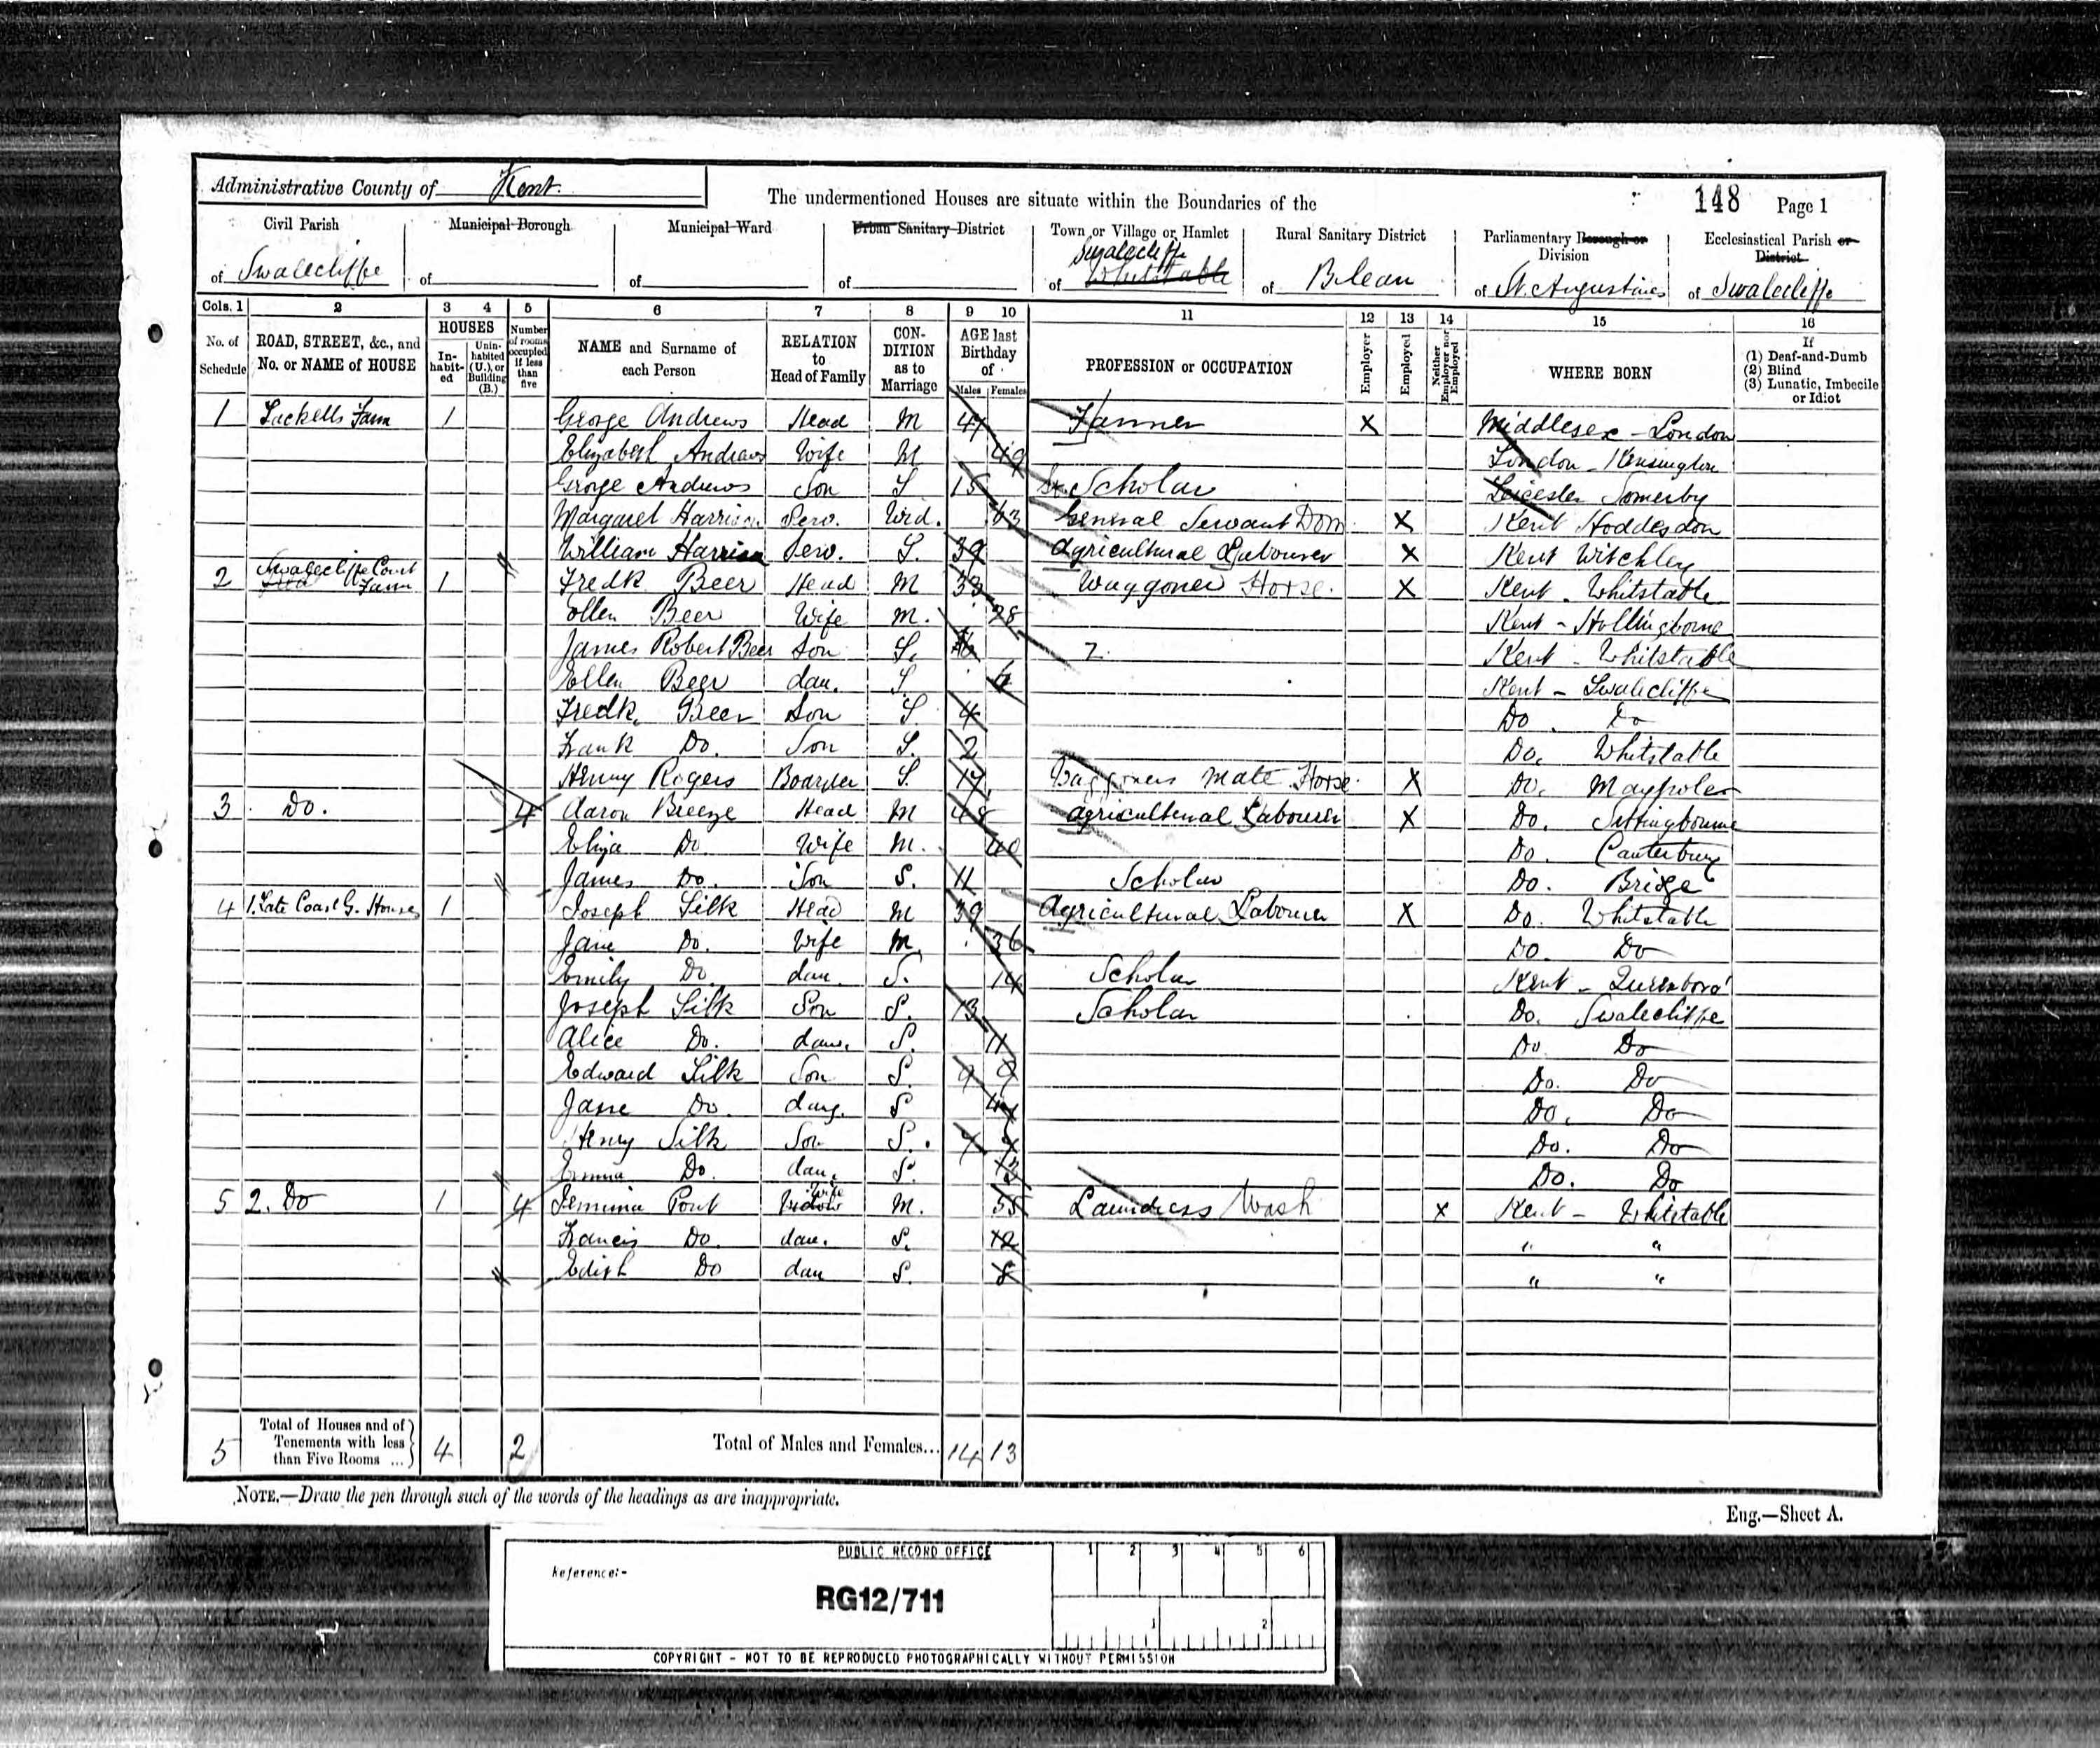 Administrative County of Kent.
The undermentioned Houses are situate within the Boundaries of the
148 Page 1
Civil Parish Municipal Borough Municipal Ward Urban Sanitary District Town or Village or Hamlet Rural Sanitary District Parliamentary Borough or Division Ecclesiastical Parish or District
of Swalecliffe of of of of Swalecliffe Whitstable of Blean of St. Augustines of Swalecliffe
Cols. 1 2 3 4 5 6 7 8 9 10 11 12 13 14 15 16
No. of Schedule ROAD, STREET, &c., and No. or NAME of HOUSE HOUSES Inhabited Uninhabited (U.), or Building (B.) Number of rooms occupied if less than five NAME and Surname of each Person RELATION to Head of Family CONDITION as to Marriage AGE last Birthday of Males Females PROFESSION or OCCUPATION Employer Employed Neither Employer nor Employed WHERE BORN If (1) Deaf-and-Dumb (2) Blind (3) Lunatic, Imbecile or Idiot
1 Farm 1 George Andrews Head M 47 Farmer X Middlesex - London
Elizabeth Andrews Wife M 49 London - Kensington
George Andrews Son S 15 Scholar Leicester Somerby
Margaret Harrison Serv. Wid. 63 General Servant Dom X Kent Hoddesdon
William Harrison Serv. S. 39 Agricultural Labourer X Kent Witchley
2 Swalecliffe Court Farm 1 Fredk Beer Head M 33 Waggoner Horse. X Kent - Whitstable
Ellen Beer Wife M. 28 Kent - Hollingborne
James Robert Beer Son S. Kent - Whitstable
Ellen Beer dau. S Kent - Swalecliffe
Fredk. Beer Son S. 4 Do. Do
Frank Do. Son S. 2 Do. Whitstable
Henry Rogers Boarder S. 17 Waggoners Mate Horse. X Do. Maypole
3 Do. 4 Aaron Breeze Head M 48 Agricultural Labourer X Do. Sittingbourne
Eliza Do Wife M. 40 Do. Canterbury
James Do. Son S. 11 Scholar Do. Bridge
4 1. Late Coast G. Houses 1 Joseph Silk Head M 39 Agricultural Labourer X Do. Whitstable
Jane Do. Wife M. 36 Do. Do
Emily Do dau. S. 14 Scholar Kent - Queenboro'
Joseph Silk Son S. 13 Scholar Do. Swalecliffe
Alice Do. dau. S. 11 Do Do
Edward Silk Son S. 9 9 Do. Do
Jane Do. dau. S Do. Do
Henry Silk Son S. 4 Do. Do
Emma Do. dau. S. Do. Do
5 2. Do 1 4 Jemima Pout Widow Wife M. 55 Laundress Wash X Kent - Whitstable
Francis Do dau. S. 12 " "
Edith Do dau S. 8 " "
5 Total of Houses and of Tenements with less than Five Rooms ... 4 2 Total of Males and Females... 14 13
NOTE.—Draw the pen through such of the words of the headings as are inappropriate.
Eng.—Sheet A.
PUBLIC RECORD OFFICE 1 2 3 4 5 6
Reference:-
RG12/711
1 2
COPYRIGHT - NOT TO BE REPRODUCED PHOTOGRAPHICALLY WITHOUT PERMISSION